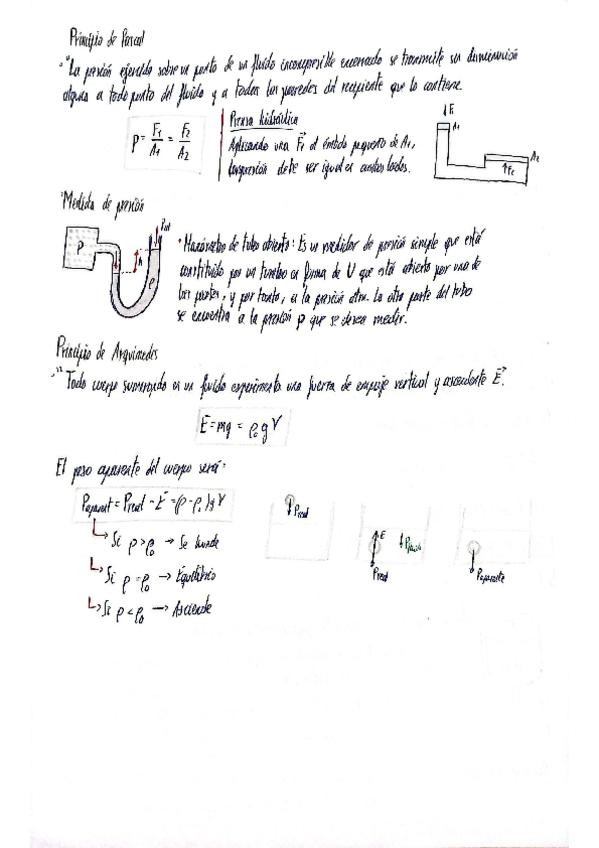 Principio de Pascal
"La presión ejercida sobre un punto de un fluido incompresible encerrado se transmite sin disminución
alguna a todo punto del fluido y a todas las paredes del recipiente que lo contiene.
P = F₁/A₁ = F₂/A₂
Prensa hidráulica
Aplicando una F₁ al émbolo pequeño de A₁,
la presión debe ser igual en ambos lados.
F₁
A₁
A₂
F₂
Medida de presión
P
h
ρ
• Manómetro de tubo abierto: Es un medidor de presión simple que está
constituido por un tubo en forma de U que está abierto por una de
las partes, y por tanto, a la presión atm. La otra parte del tubo
se encuentra a la presión p que se desea medir.
Principio de Arquímedes
"Todo cuerpo sumergido en un fluido experimenta una fuerza de empuje vertical y ascendente E.
E = mg = ρ₀ g V
El peso aparente del cuerpo será:
Paparent = Preal - E = (ρ - ρ₀) g V
Si ρ > ρ₀ → Se hunde
Si ρ = ρ₀ → Equilibrio
Si ρ < ρ₀ → Asciende
Preal
E
Preal
Paparente